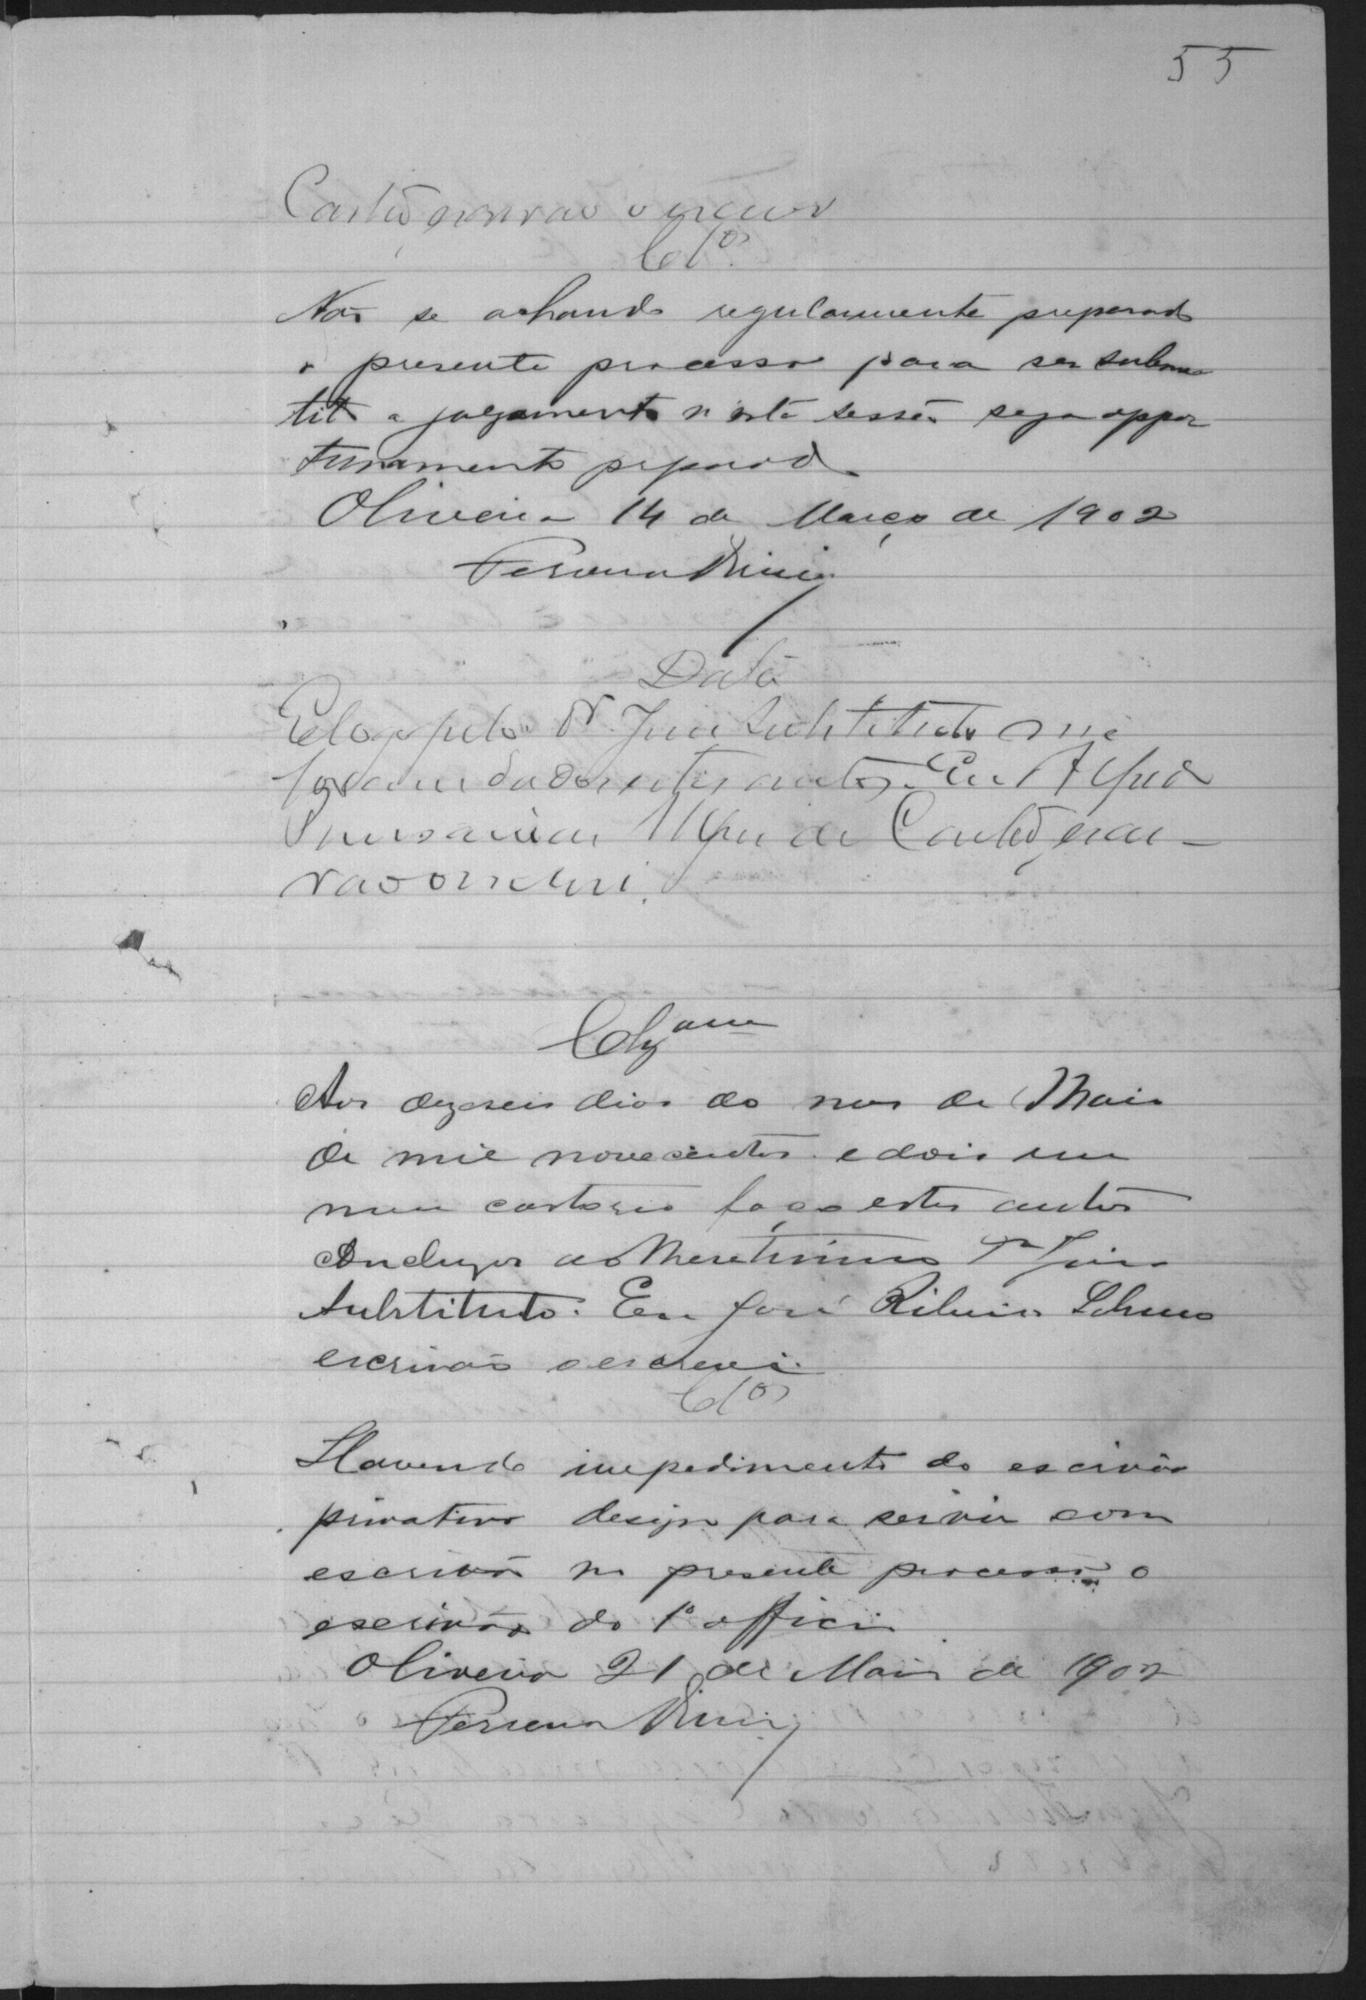 55
Castro, escrivão o escrevi
Cl.os
Não se achando regularmente preparado
o presente processo para ser subme
tido a julgamento n'esta sessão seja oppor
tunamente preparado
Oliveira 14 de Março de 1902
Data
E logo pelo Dr. Juiz Substituto me
foram dados estes autos. Eu Alfredo
de Castro, escri-
vão o escrevi.
Clzam
Aos dezeseis dias do mes de Maio
de mil novecentos e dois em
meu cartorio faço estes autos
conclusos ao Meretissimo Dr Juiz
Substituto. Eu José Ribeiro
escrivão o escrevi.
Cl.os
Havendo impedimento do escrivão
privativo designo para servir como
escrivão no presente processo o
escrivão do 1º officio
Oliveira 21 de Maio de 1902